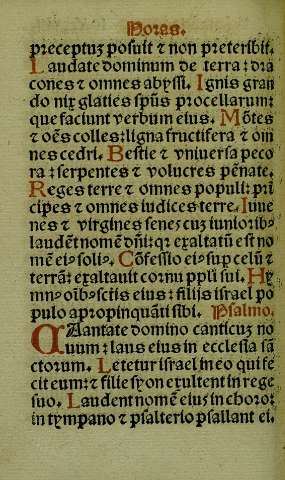 Horas.
preceptuʒ posuit ⁊ non preteribit.
Laudate dominum de terra: dra
cones ⁊ omnes abyssi. Ignis gran
do nix glaties sp̃us procellarum:
que faciunt verbum eius. Mõtes
⁊ oẽs colles: ligna fructifera ⁊ om
nes cedri. Bestie ⁊ vniuersa peco
ra: serpentes ⁊ volucres pẽnate.
Reges terre ⁊ omnes populi: prin
cipes ⁊ omnes iudices terre. Iuue
nes ⁊ virgines senes cuʒ iuniorib⁹
laudẽt nomẽ dñi: qꝛ exaltatũ est no
mẽ ei⁹ soli⁹. Cõfessio ei⁹ sup celũ ⁊
terrã: exaltauit cornu pp̃li sui. Hy
mn⁹ oĩb⁹ sctis eius: filijs israel po
pulo apropinquãti sibi. Psalmo.
Cantate domino canticuʒ no
uum: laus eius in ecclesia sã
ctorum. Letetur israel in eo qui fe
cit eum: ⁊ filie syon exultent in rege
suo. Laudent nomẽ eius in choro:
in tympano ⁊ psalterio psallant ei.